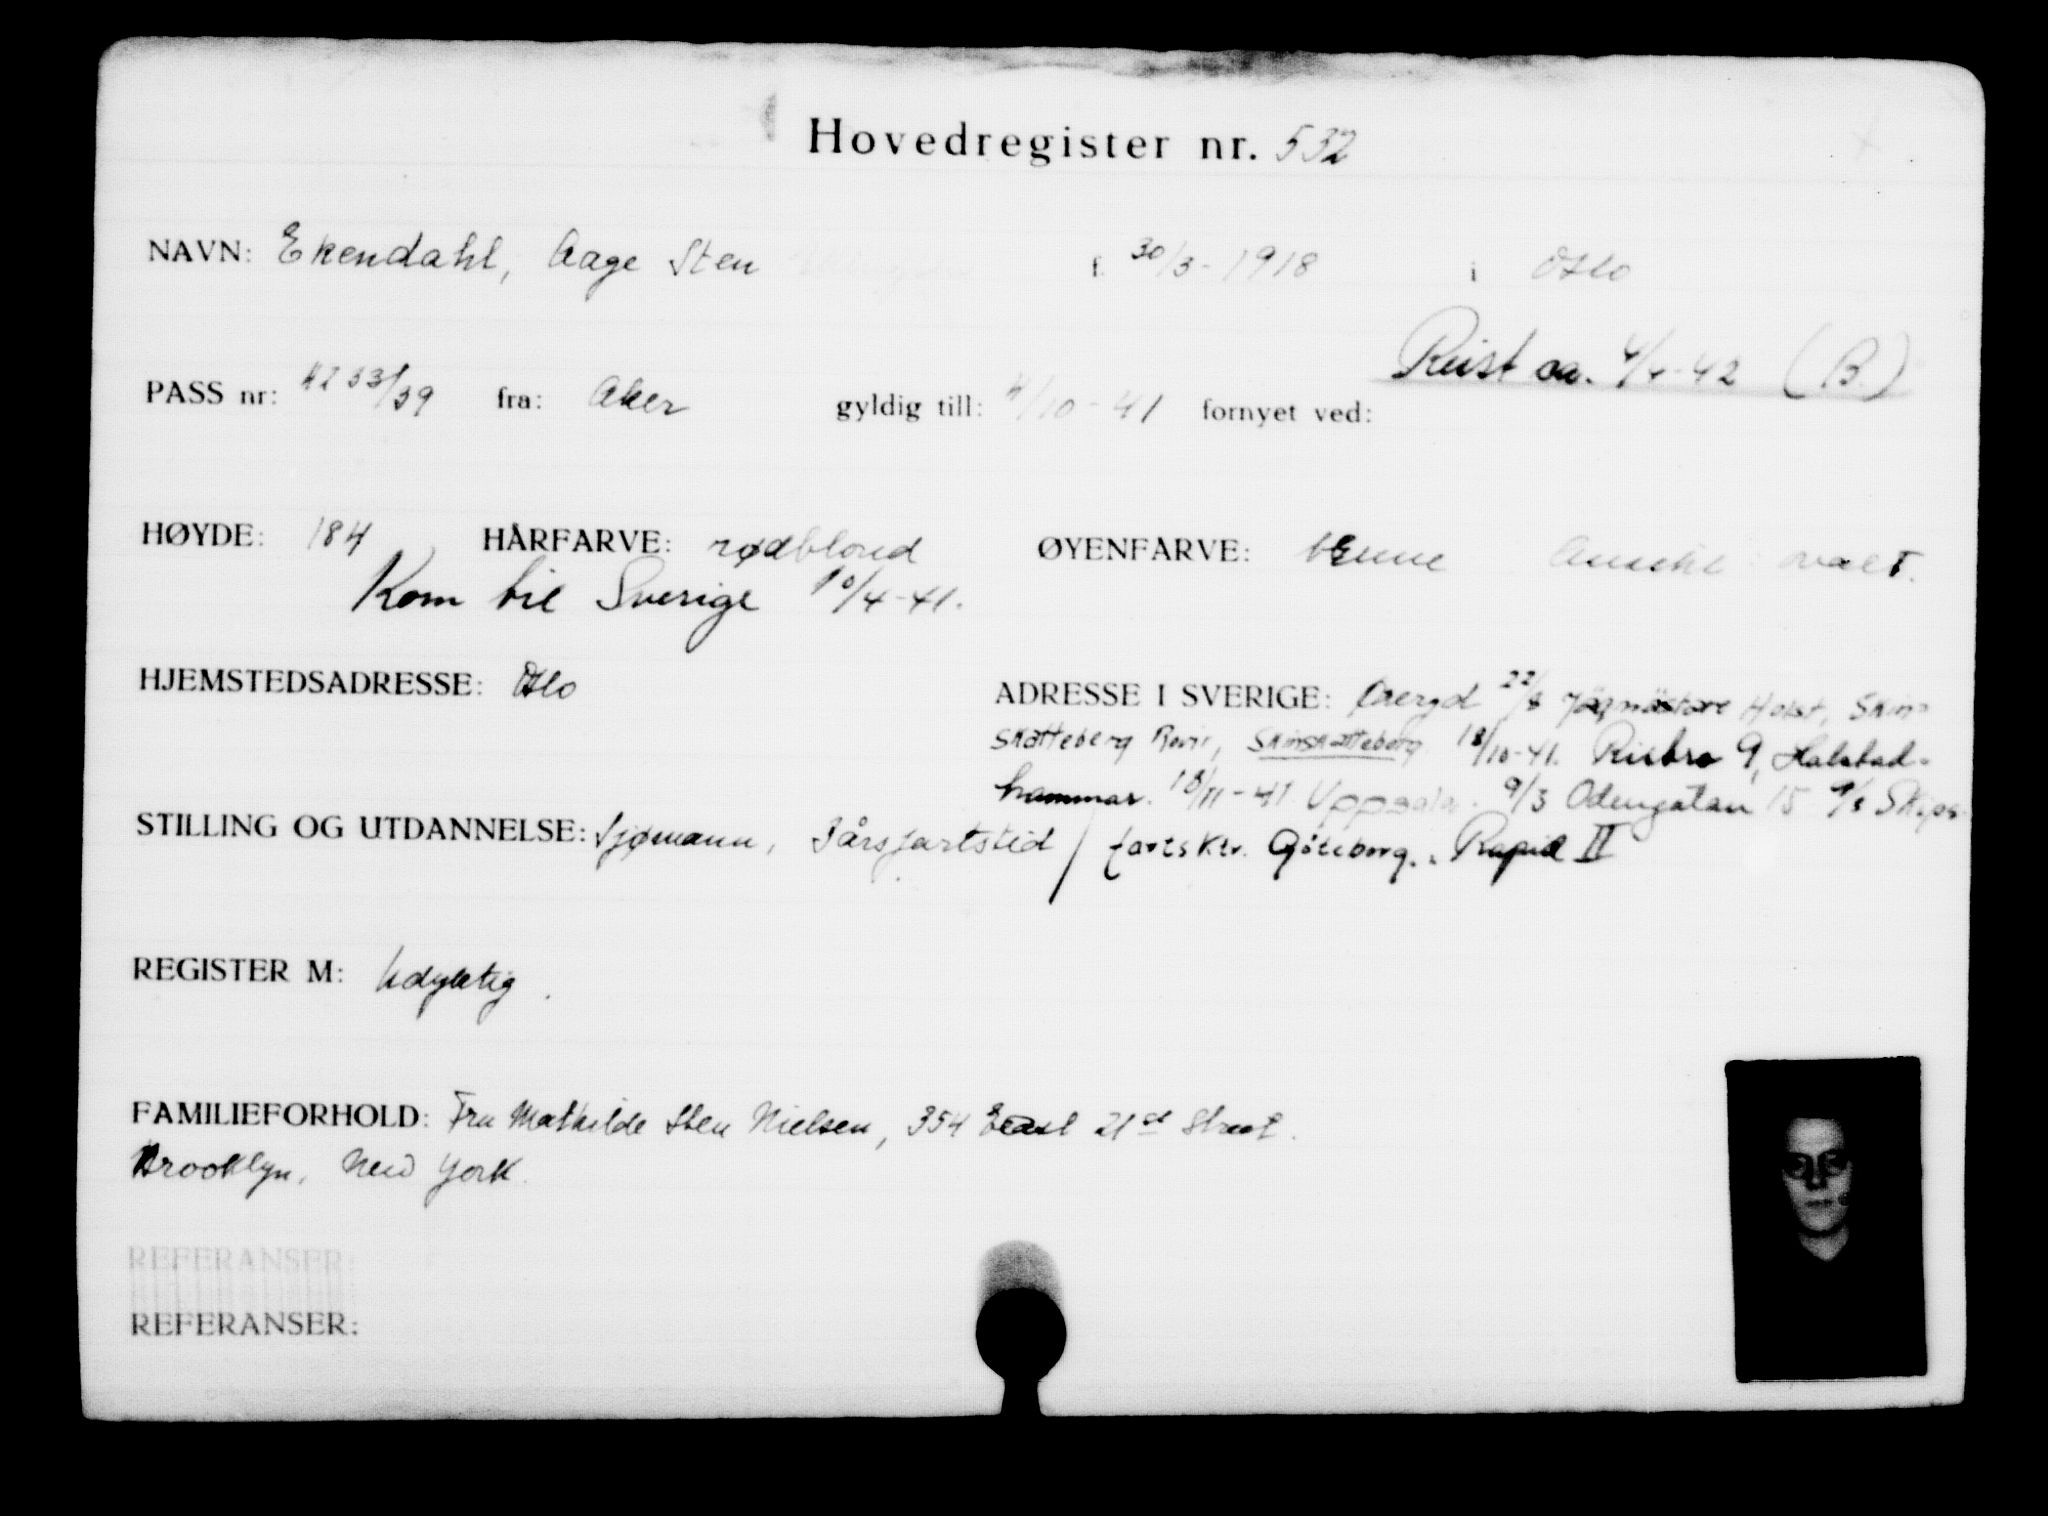 Hovedregister nr. 532
NAVN: Ekendahl, Aage Sten f. 30/3-1918 i Oslo
Reist ca. 4/4-42 (B.)
PASS nr: 4233/39 fra: Aker gyldig till: 4/10-41 fornyet ved:
HØYDE: 184 HÅRFARVE: rødblond ØYENFARVE: Ansikt ovalt.
Kom til Sverige 10/4-41.
HJEMSTEDSADRESSE: Oslo
ADRESSE I SVERIGE: Øreryd 22/8 Jägmästare Holst, Skin-
skatteberg Revir, Skinskatteberg 18/10-41. Risbro 9, Halstad-
hammar. 18/11-41 Uppsala. 9/3 Odengatan 15 9/3 Skips
STILLING OG UTDANNELSE: Sjømann, 3årsfartstid / fartsktr. Göteborg. Rapid II
REGISTER M: Udyktig.
FAMILIEFORHOLD: Fru Mathilde Sten Nielsen, 354 East 21st Street.
Brooklyn, New York.
REFERANSER:
REFERANSER: